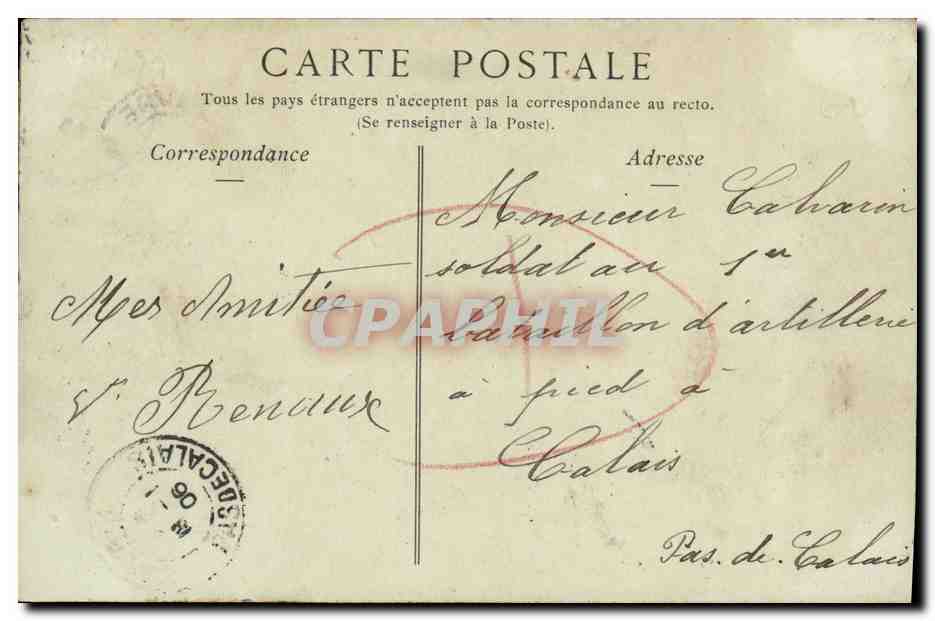 CARTE POSTALE
Tous les pays étrangers n'acceptent pas la correspondance au recto.
(Se renseigner à la Poste).
Correspondance
Mes Amitiée
V. Renaux
Adresse
Monsieur Calvarin
soldat au 1er
bataillon d'artillerie
à pied à
Calais
Pas. de. Calais
CPAPHIL
PAS DE CALAIS
06